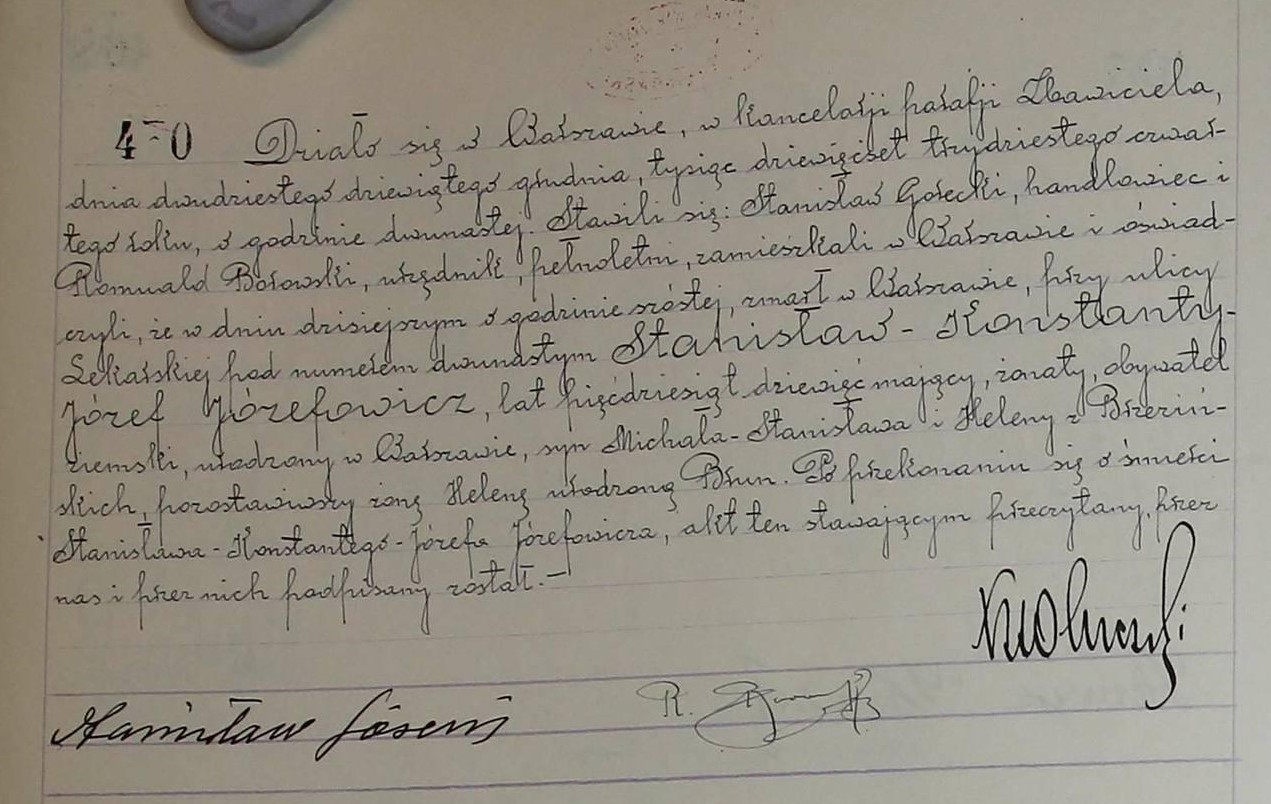 470 Działo się w Warszawie, w kancelarji parafji Zbawiciela,
dnia dwudziestego dziewiątego grudnia, tysiąc dziewięćset trzydziestego czwar-
tego roku, o godzinie dwunastej. Stawili się: Stanisław Gorecki, handlowiec i
Romuald Borowski, urzędnik, pełnoletni, zamieszkali w Warszawie i oświad-
czyli, że w dniu dzisiejszym o godzinie szóstej, zmarł w Warszawie, przy ulicy
Lekarskiej pod numerem dwunastym Stanisław-Konstanty-
Józef Józefowicz, lat pięćdziesiąt dziewięć mający, żonaty, obywatel
ziemski, urodzony w Warszawie, syn Michała-Stanisława i Heleny z Brzeziń-
skich, pozostawiwszy żonę Helenę urodzoną Brun. Po przekonaniu się o śmierci
Stanisława-Konstantego-Józefa Józefowicza, akt ten stawającym przeczytany, przez
nas i przez nich podpisany został.—
Stanisław R.